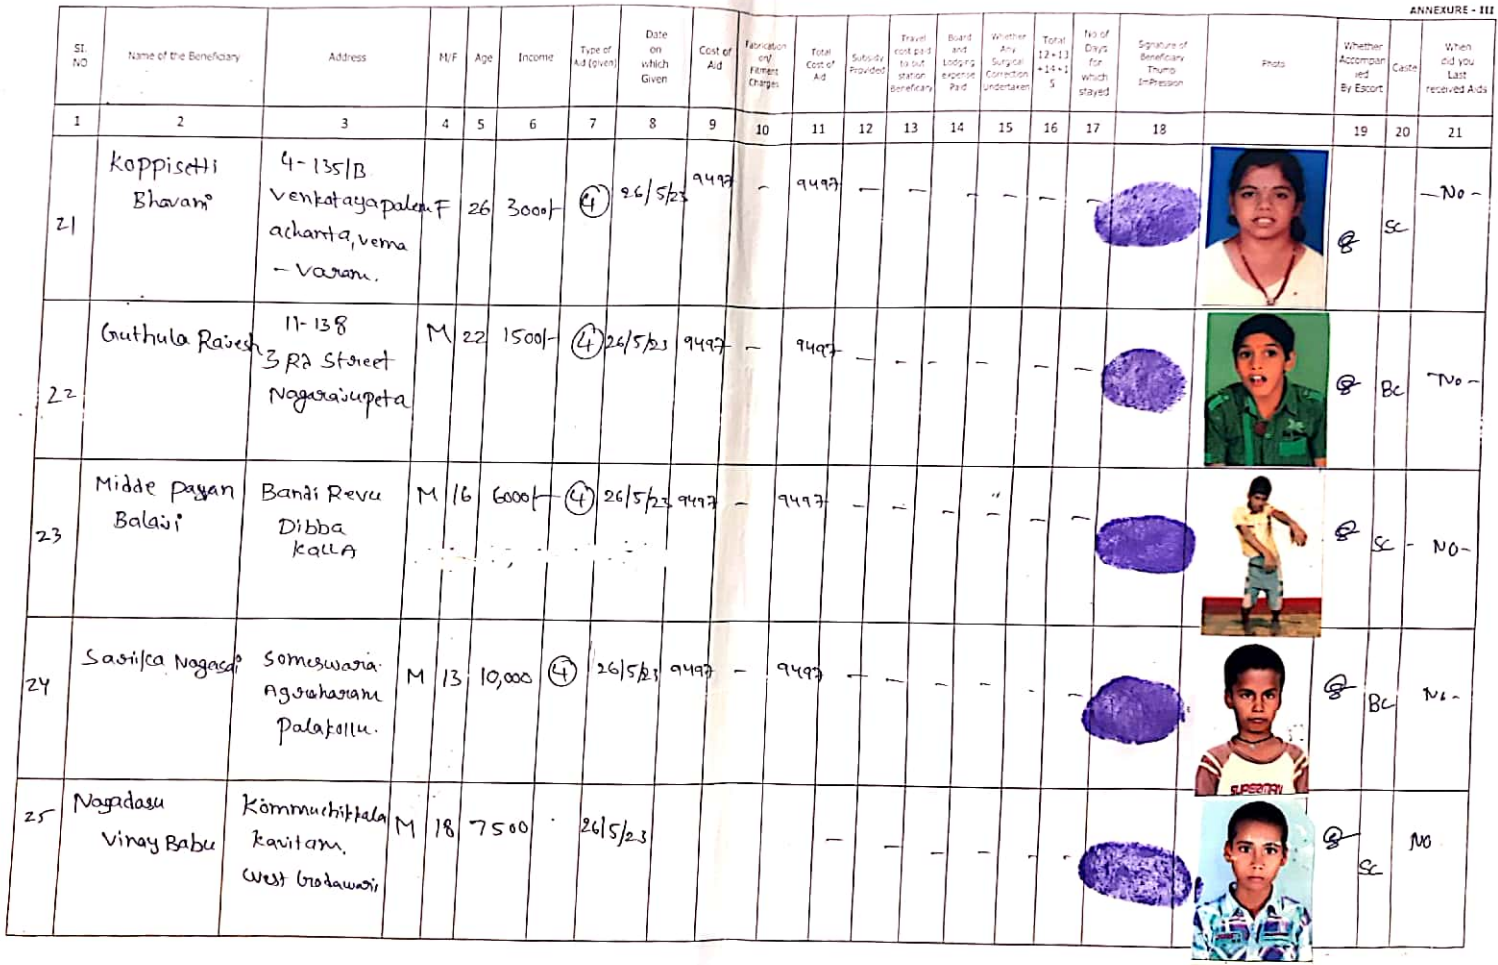 ANNEXURE - III
SI. NO | Name of the Beneficiary | Address | M/F | Age | Income | Type of Aid (given) | Date on which Given | Cost of Aid | Fabrication on/ Fitment Charges | Total Cost of Aid | Subsidy Provided | Travel cost paid to out station Beneficiary | Board and Lodging expense Paid | Whether Any Surgical Correction undertaken | Total 12+13+14+15 | No of Days for which stayed | Signature of Beneficiary Thump ImPression | Photo | Whether Accompanied By Escort | Caste | When did you Last received Aids
1 | 2 | 3 | 4 | 5 | 6 | 7 | 8 | 9 | 10 | 11 | 12 | 13 | 14 | 15 | 16 | 17 | 18 | 19 | 20 | 21
21 | Koppisetti Bhavani | 4-135/B Venkatayapalem achanta, vema - varam. | F | 26 | 3000/- | 4 | 26/5/23 | 9497 | - | 9497 | - | - | - | - | - | - | SC | - No -
22 | Guthula Rajesh | 11-138 3 Rd Street Nagarajupeta | M | 22 | 1500/- | 4 | 26/5/23 | 9497 | - | 9497 | - | - | - | - | - | - | BC | - No -
23 | Midde Pavan Balaji | Bandi Revu Dibba KallA | M | 16 | 6000/- | 4 | 26/5/23 | 9497 | - | 9497 | - | - | - | - | - | - | SC | - NO -
24 | Someswara Agraharam Palakollu. | M | 13 | 10,000 | 4 | 26/5/23 | 9497 | - | 9497 | - | - | - | - | - | - | BC | No -
25 | Nagadasu Vinay Babu | Kommuchikkala Kavitam, West Godawari | M | 18 | 7500 | 26/5/23 | - | - | - | - | - | - | SC | NO
SUPERMAN